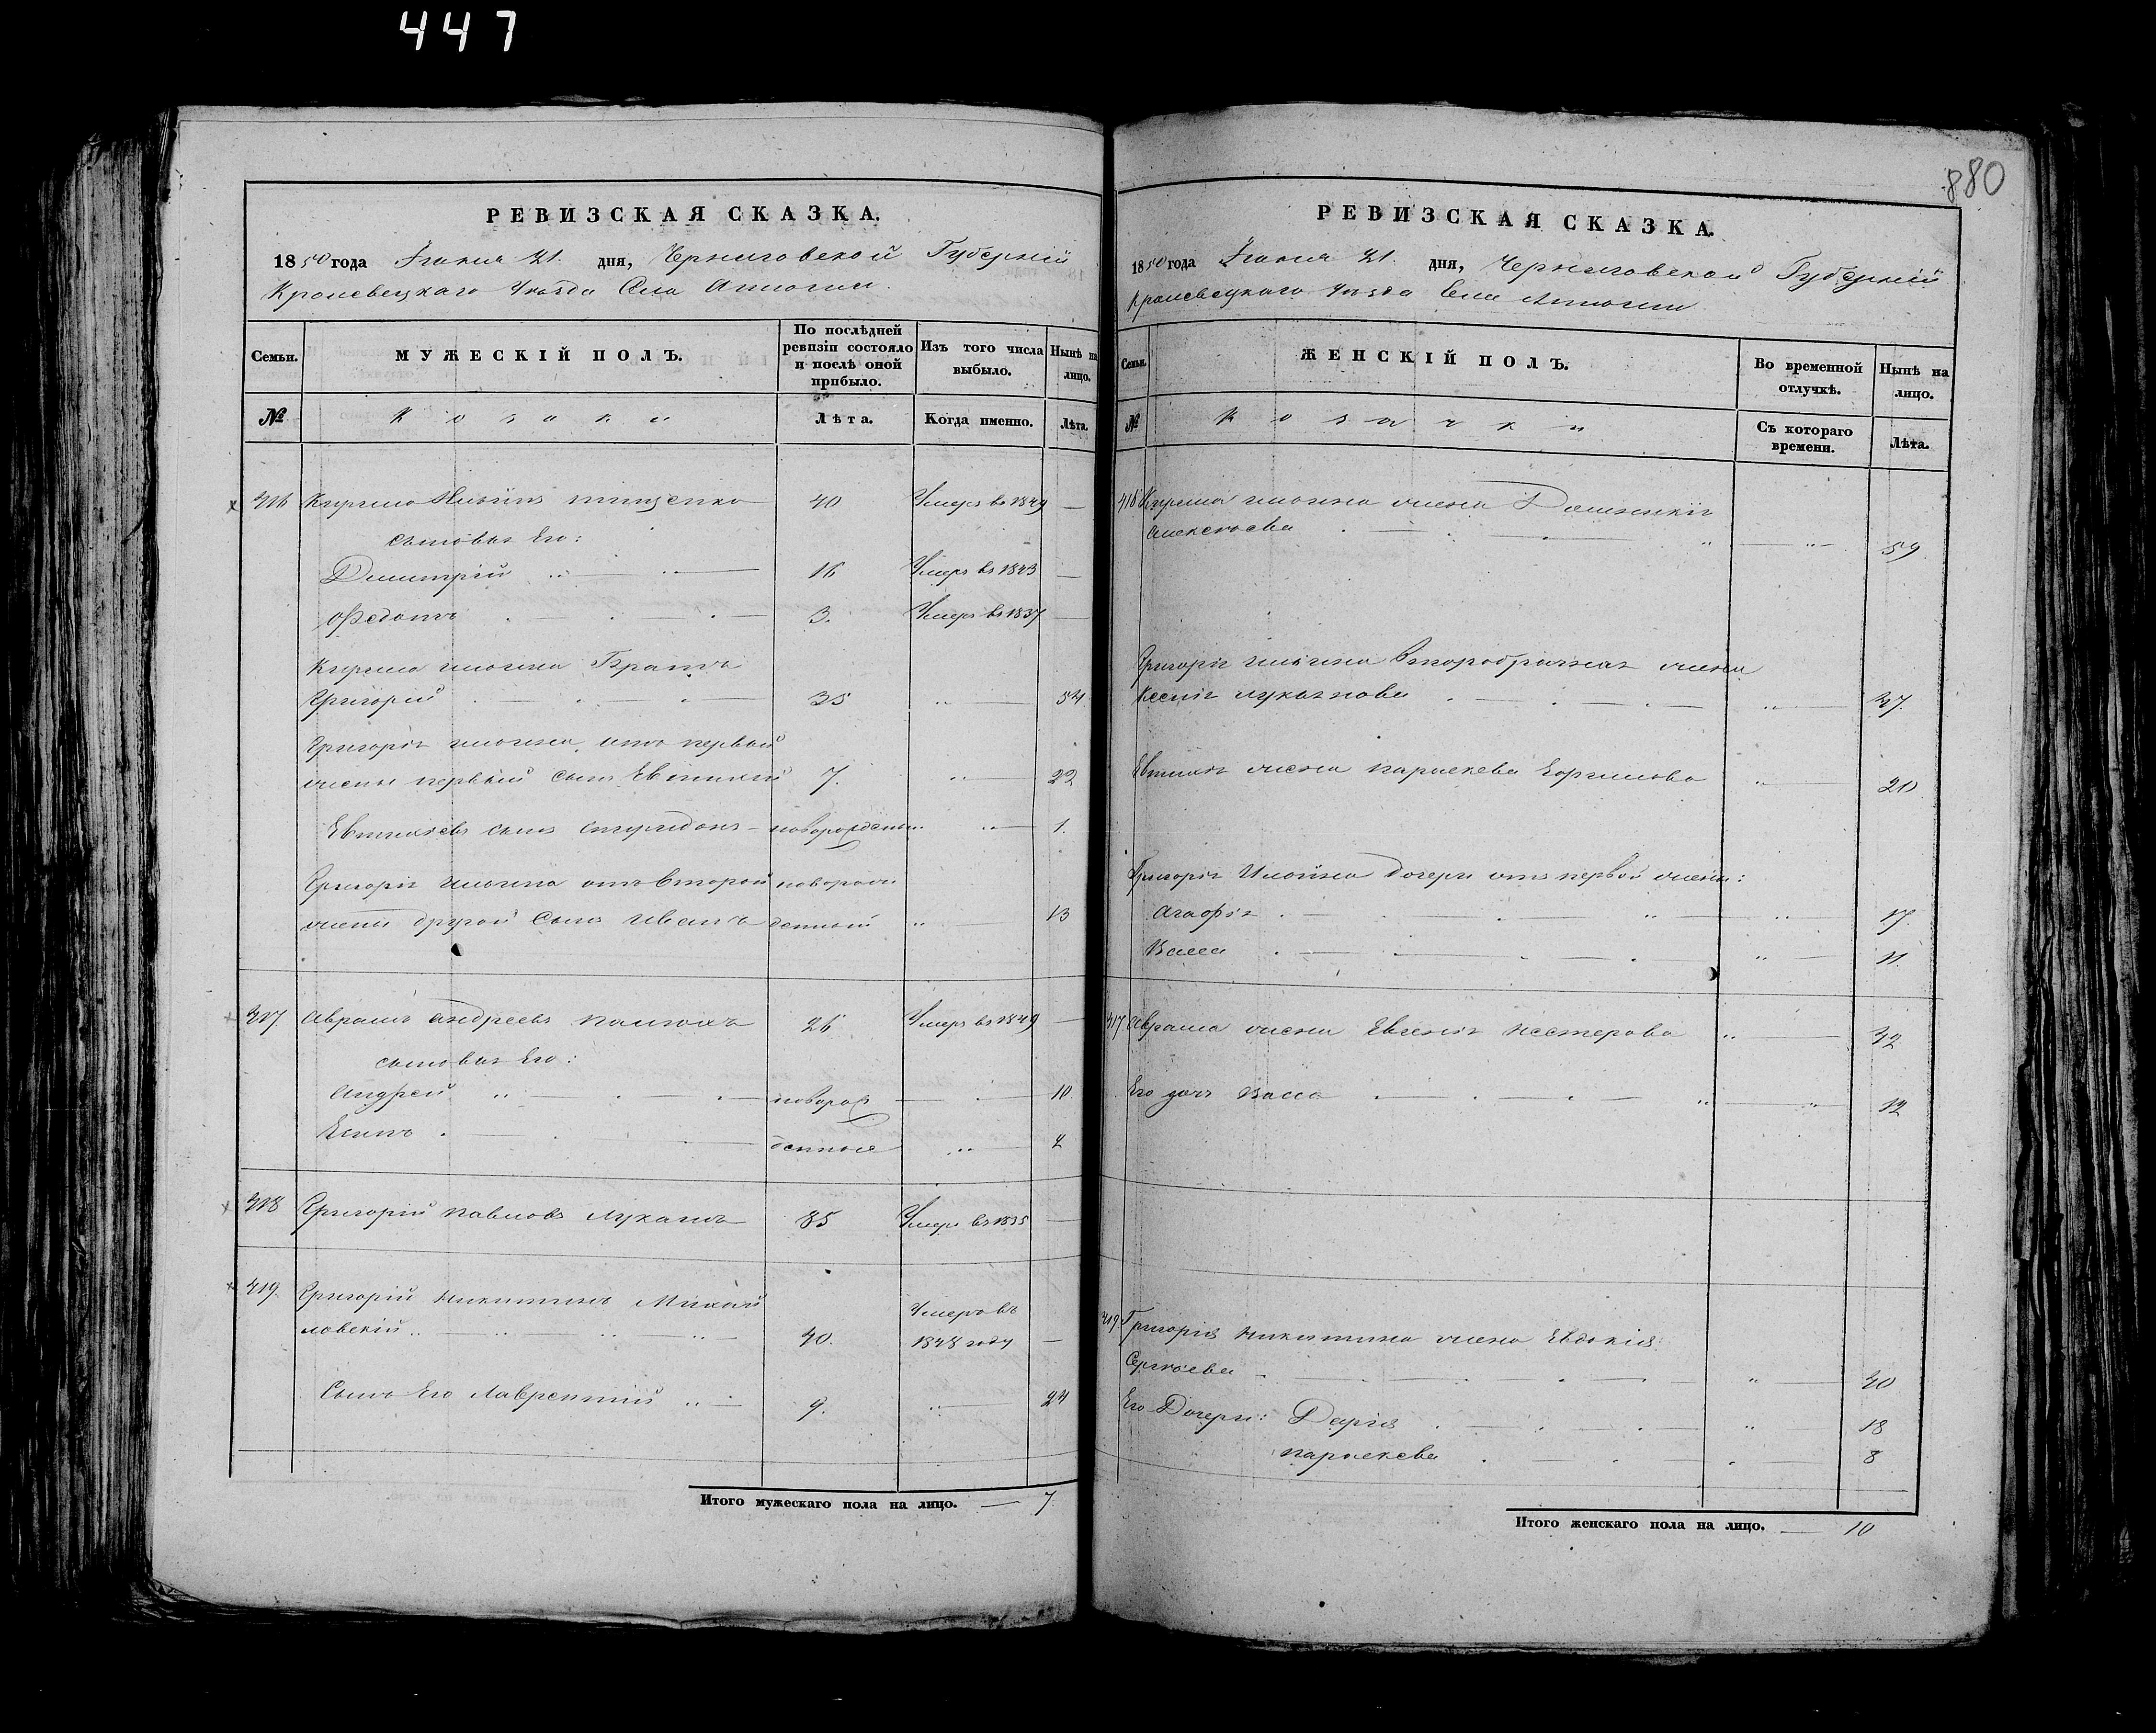 447
880
РЕВИЗСКАЯ СКАЗКА.
1850 года Іюня 21. дня, Черниговской Губерніи
Кролевецкаго Уѣзда Села
Семьи. МУЖЕСКІЙ ПОЛЪ. По послѣдней ревизіи состояло и послѣ оной прибыло. Изъ того числа выбыло. Нынѣ на лицо.
№ Козаки Лѣта. Когда именно. Лѣта.
416 Кирило Ильинъ 40 Умеръ въ 1849 —
сыновья Его:
Димитрій 16 Умеръ въ 1843 —
Федотъ 3. Умеръ въ 1837 —
Кирила Ильина Братъ
Григорій 35 54
Григорія Ильина отъ первой
жены первый сынъ Евтихій 7. 22
Евтихіевъ сынъ Спиридонъ – новорожденный 1.
Григорія Ильина отъ второй новорож
жены другой сынъ Иванъ денный 13
417 Аврамъ Андреевъ 26 Умеръ въ 1849 —
сыновья Его:
Андрей новорож 10.
денные
418 Григорій Павловъ 85 Умеръ въ 1835 —
419 Григорій Никитинъ Михай Умеръ въ
ловскій 40. 1848 году —
Сынъ Его Лаврентій 9. 24
Итого мужескаго пола на лицо. — 7.
РЕВИЗСКАЯ СКАЗКА.
1850 года Іюня 21. дня, Черниговской Губерніи
Кролевецкаго Уѣзда Села
Семьи. ЖЕНСКІЙ ПОЛЪ. Во временной отлучкѣ. Нынѣ на лицо.
№ Козачки Съ котораго времени. Лѣта.
416 Кирила Ильина жена
Алексѣева 59
Григорія Ильина второбрачная жена
Ксенія 47.
Евтихія жена Параскева 20
Григорія Ильина дочери отъ первой жены:
Агафія 17.
Васса 11.
417 Аврама жена Евгенія Нестерова 42
Его дочь Васса 12
419 Григорія Никитина жена Евдокія
Сергѣева 40
Его Дочери: Дарія 18
Параскева 8
Итого женскаго пола на лицо. — 10